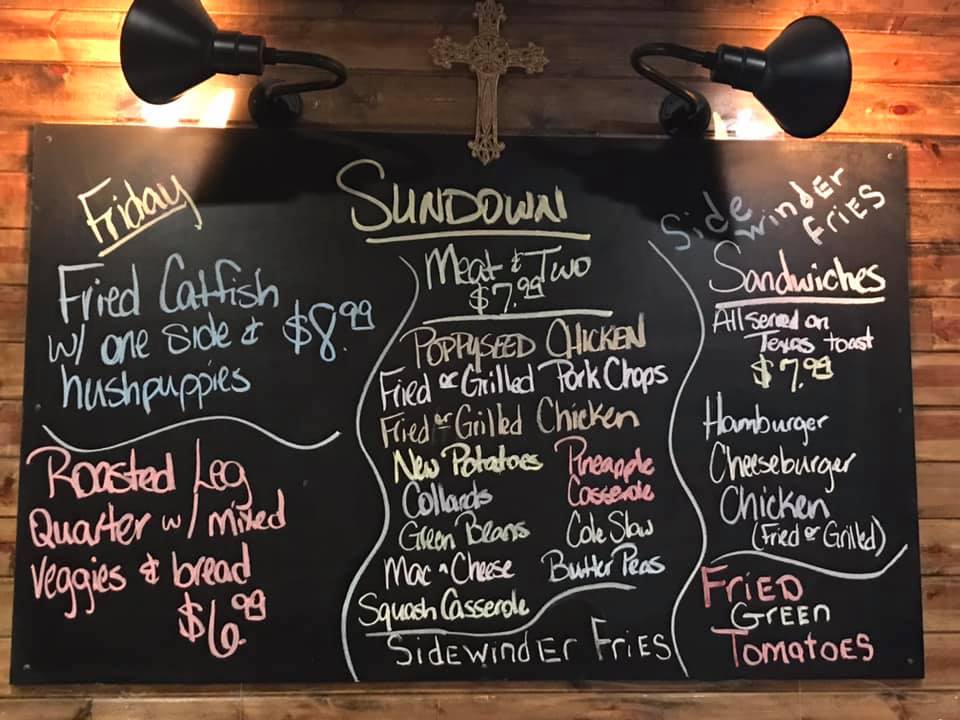 Friday
Fried Catfish
w/ one side & $8.99
hushpuppies
Roasted Leg
Quarter w/ mixed
veggies & bread
$6.99
SUNDOWN
Meat & Two
$7.99
POPPYSEED CHICKEN
Fried or Grilled Pork Chops
Fried or Grilled Chicken
New Potatoes
Collards
Green Beans
Mac n Cheese
Squash Casserole
Pineapple
Casserole
Cole Slaw
Butter Peas
SIDEWINDER FRIES
Side winder
FRIES
Sandwiches
All served on
Texas toast
$7.99
Hamburger
Cheeseburger
Chicken
(Fried or Grilled)
FRIED
GREEN
TOMATOES